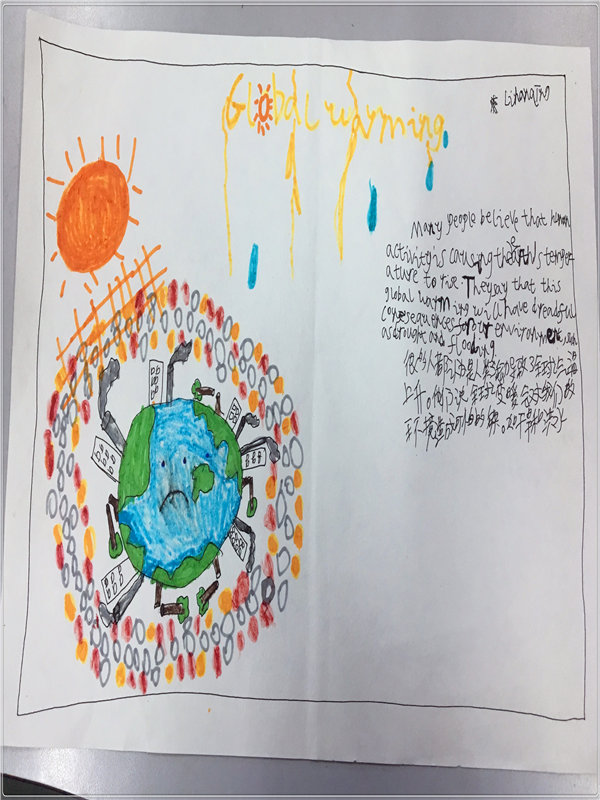 Global warming
LihangJm
Many people believe that human
activity is causing the earth's temper
ature to rise. They say that this
global warming will have dreadful
consequences for our environment, such
as drought and flooding
很多人都认为是人类活动导致全球气温
上升。他们说,全球气候变暖会对我们的
环境造成可怕的后果。如干旱和洪水